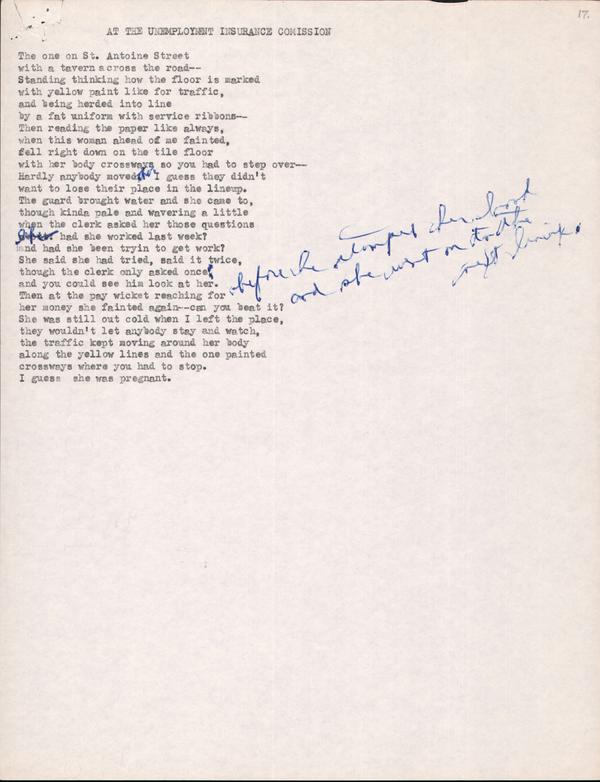 17.
AT THE UNEMPLOYMENT INSURANCE COMISSION
The one on St. Antoine Street
with a tavern across the road--
Standing thinking how the floor is marked
with yellow paint like for traffic,
and being herded into line
by a fat uniform with service ribbons--
Then reading the paper like always,
when this woman ahead of me fainted,
fell right down on the tile floor
with her body crossways so you had to step over--
Hardly anybody moved I guess they didn't
want to lose their place in the lineup.
The guard brought water and she came to,
though kinda pale and wavering a little
when the clerk asked her those questions
had she worked last week?
and had she been tryin to get work?
She said she had tried, said it twice,
though the clerk only asked once
and you could see him look at her.
before he stamped her book
and she went on to the
next line.
Then at the pay wicket reaching for
her money she fainted again--can you beat it?
She was still out cold when I left the place,
they wouldn't let anybody stay and watch,
the traffic kept moving around her body
along the yellow lines and the one painted
crossways where you had to stop.
I guess she was pregnant.